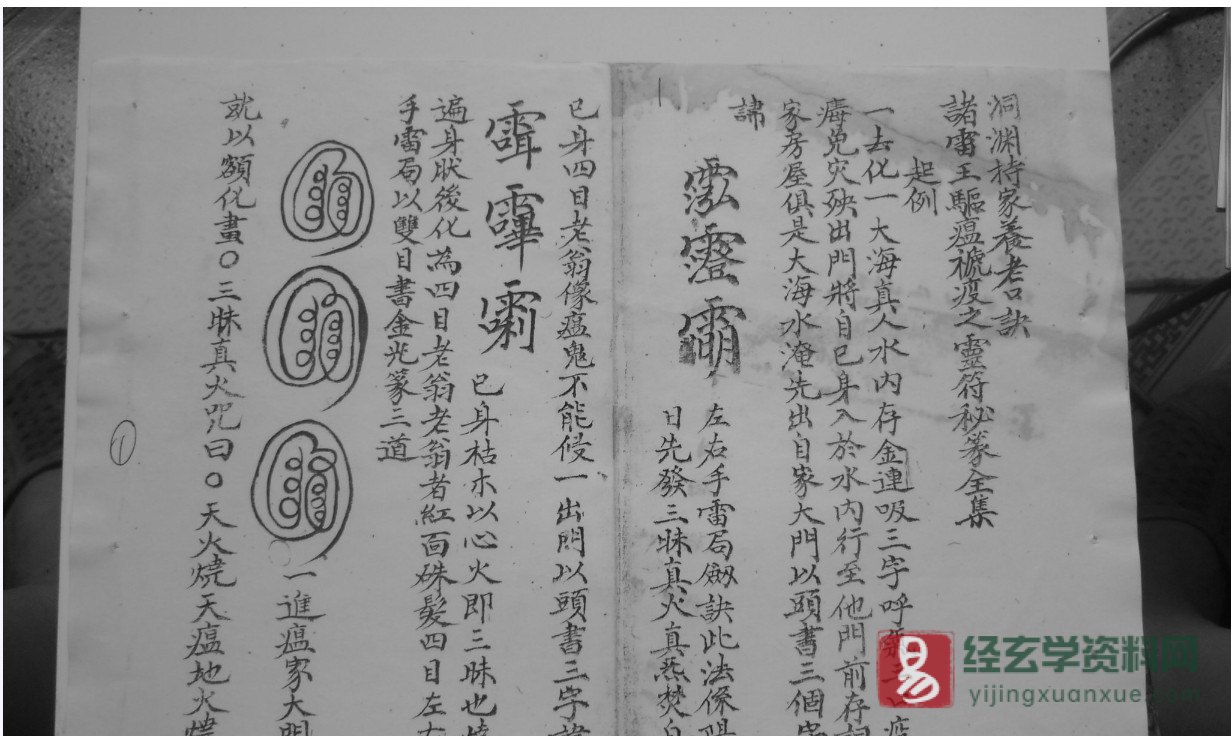 洞渊持家養老口訣
諸雷王驅瘟襪疫之靈符秘篆全集
起例
一去化一大海真人水內存金連吸三字呼
痗免灾殃出門將自己身入於水內行至他門前存
家房屋俱是大海水淹先出自家大門以頭書三個
諱
左右手雷局劔訣此法係
日先發三昧真火真炁焚
已身四目老翁像瘟鬼不能侵一出門以頭書三字諱
已身枯木以心火即三昧也
遍身狀後化為四目老翁老翁者紅面硃髮四目左右
手雷局以雙目書金光篆三道
一進瘟家大門
就以額化畫〇三昧真火咒曰〇天火燒天瘟地火燒
①
易
经玄学资料网
yijingxuanxue.com